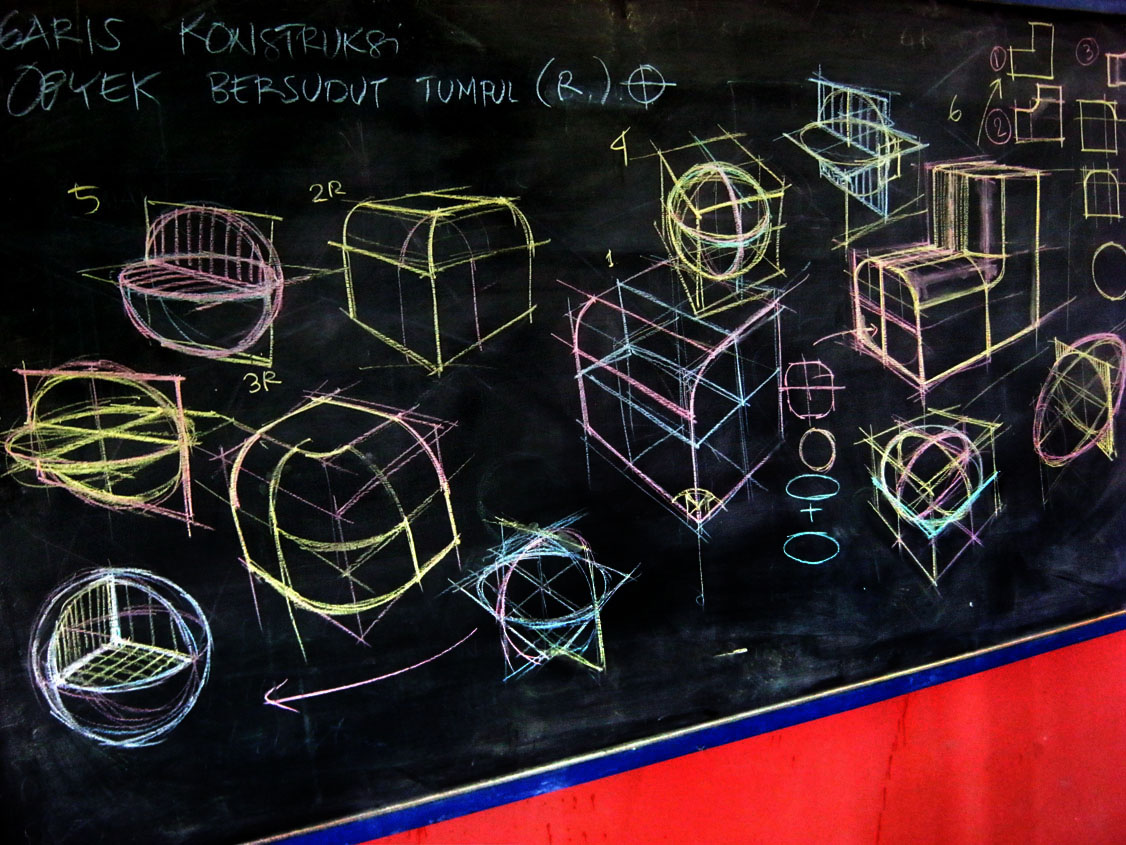 GARIS KONSTRUKSI
OBYEK BERSUDUT TUMPUL (R.)
1
3
6
2
4
5
2R
1
3R